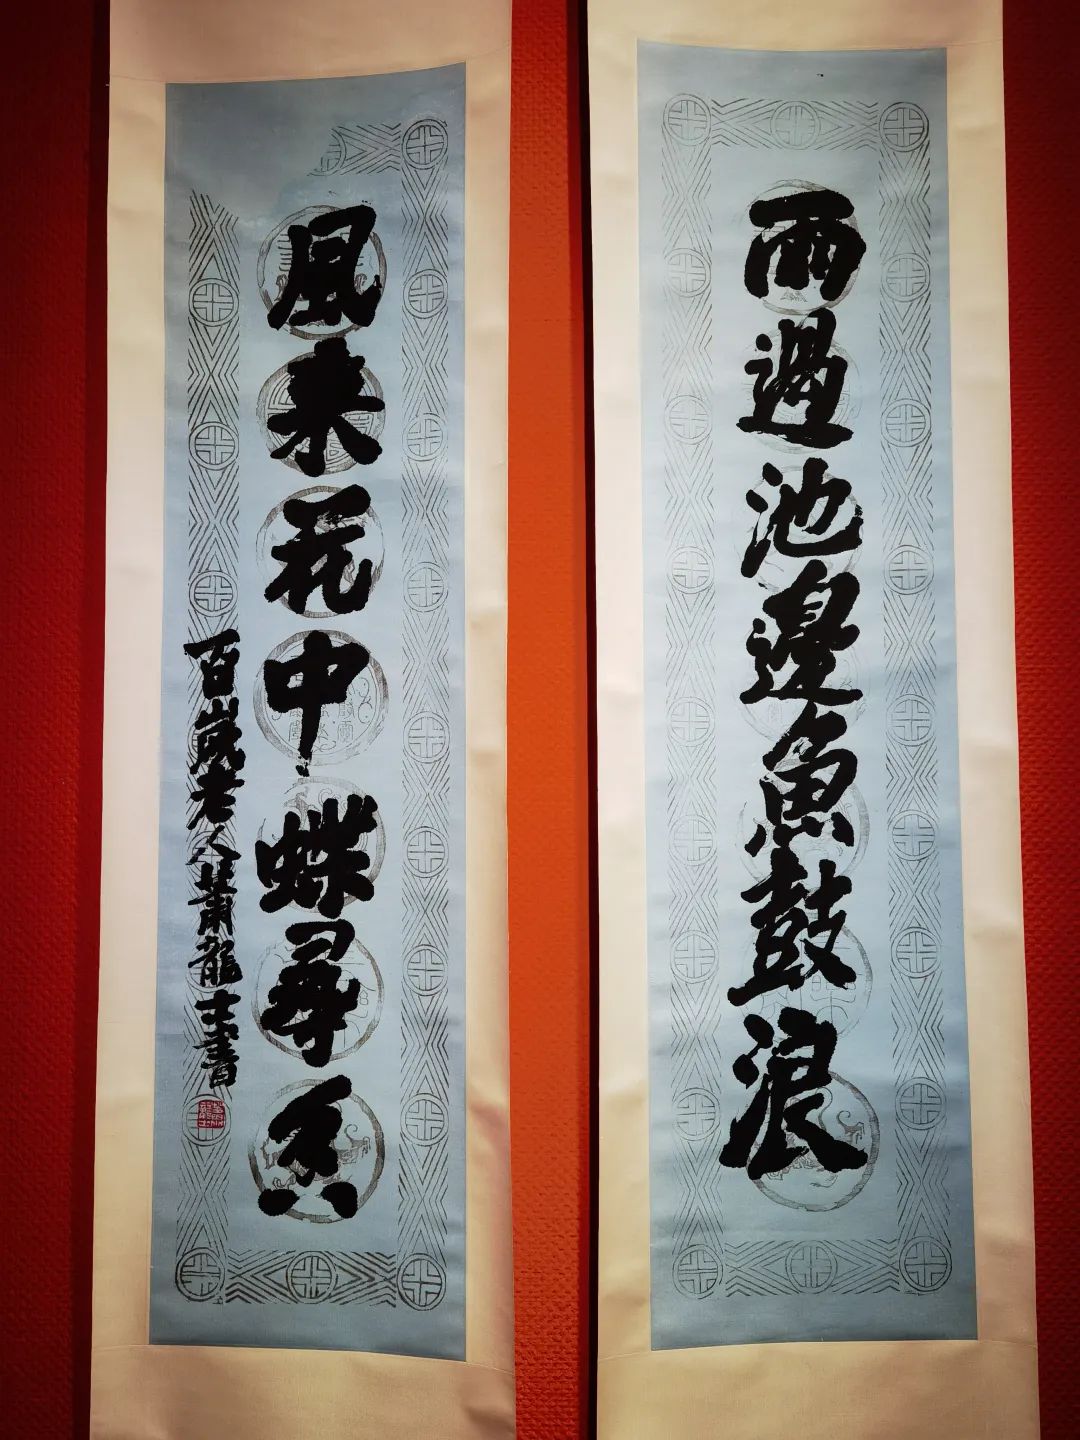 雨過池邊魚鼓浪
風来花中蝶尋香
百歲老人蕭龍士書